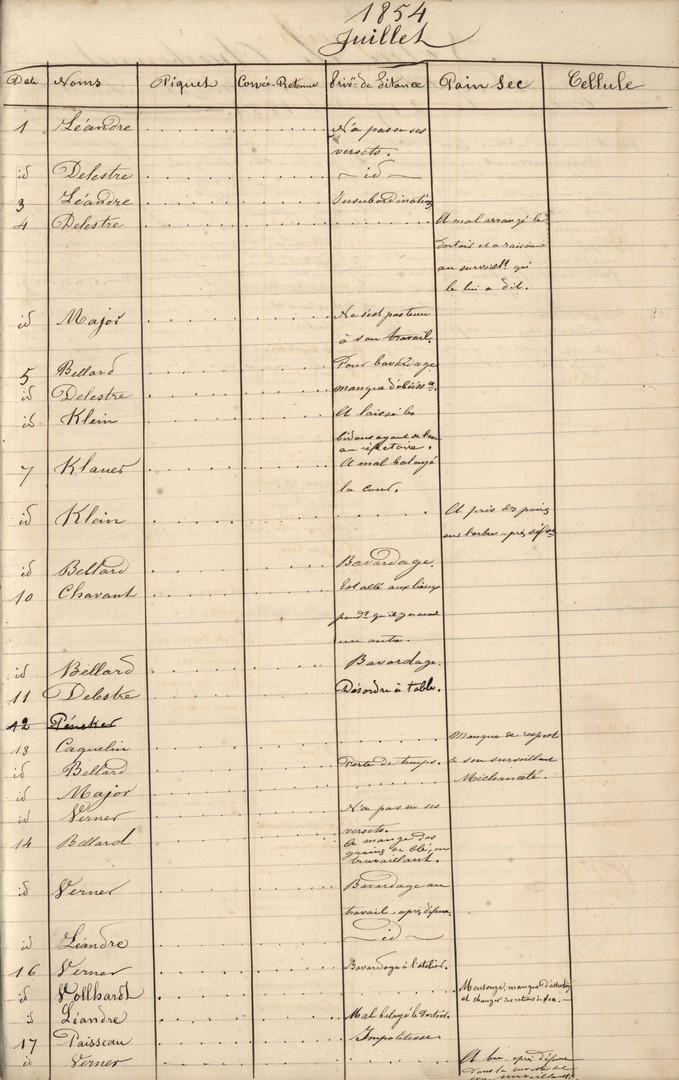 1854
Juillet
Date Noms Piquet Corvée-Retenue Privon de Pitance Pain Sec Cellule
1 Léandre N'a pas su ses
versets.
id Delestre id
3 Léandre Insubordination
4 Delestre A mal arrangé le
dortoir et a raisonné
au surveillt qui
le lui a dit.
id Major Ne s'est pas tenu
à son travail.
5 Bellard Pour bavardage
id Delestre manque d'obéissce.
id Klein A laissé les
bidons ayant de l'eau
au réfectoire.
7 Klauer A mal balayé
la cour.
id Klein A pris des poires
sur l'arbre après défense
id Bellard Bavardage.
10 Chavant Est allé aux lieux
pendt qu'il y avait
un autre.
id Bellard Bavardage.
11 Delestre Désordre à table.
12
13 Caquelin Manque de respect
à son surveillant
id Bellard Perte de temps.
id Major Méchanceté.
id Verner N'a pas su ses
versets.
14 Bellard A mangé des
grains de blé, en
travaillant.
id Verner Bavardage au
travail, après défense.
id Léandre id
16 Verner Bavardage à l'atelier.
id Vollhardt Mensonge, manque
et changer
id Léandre Mal balayé le dortoir.
17 Paisseau Impolitesse
id Verner A bu, après défense
dans la